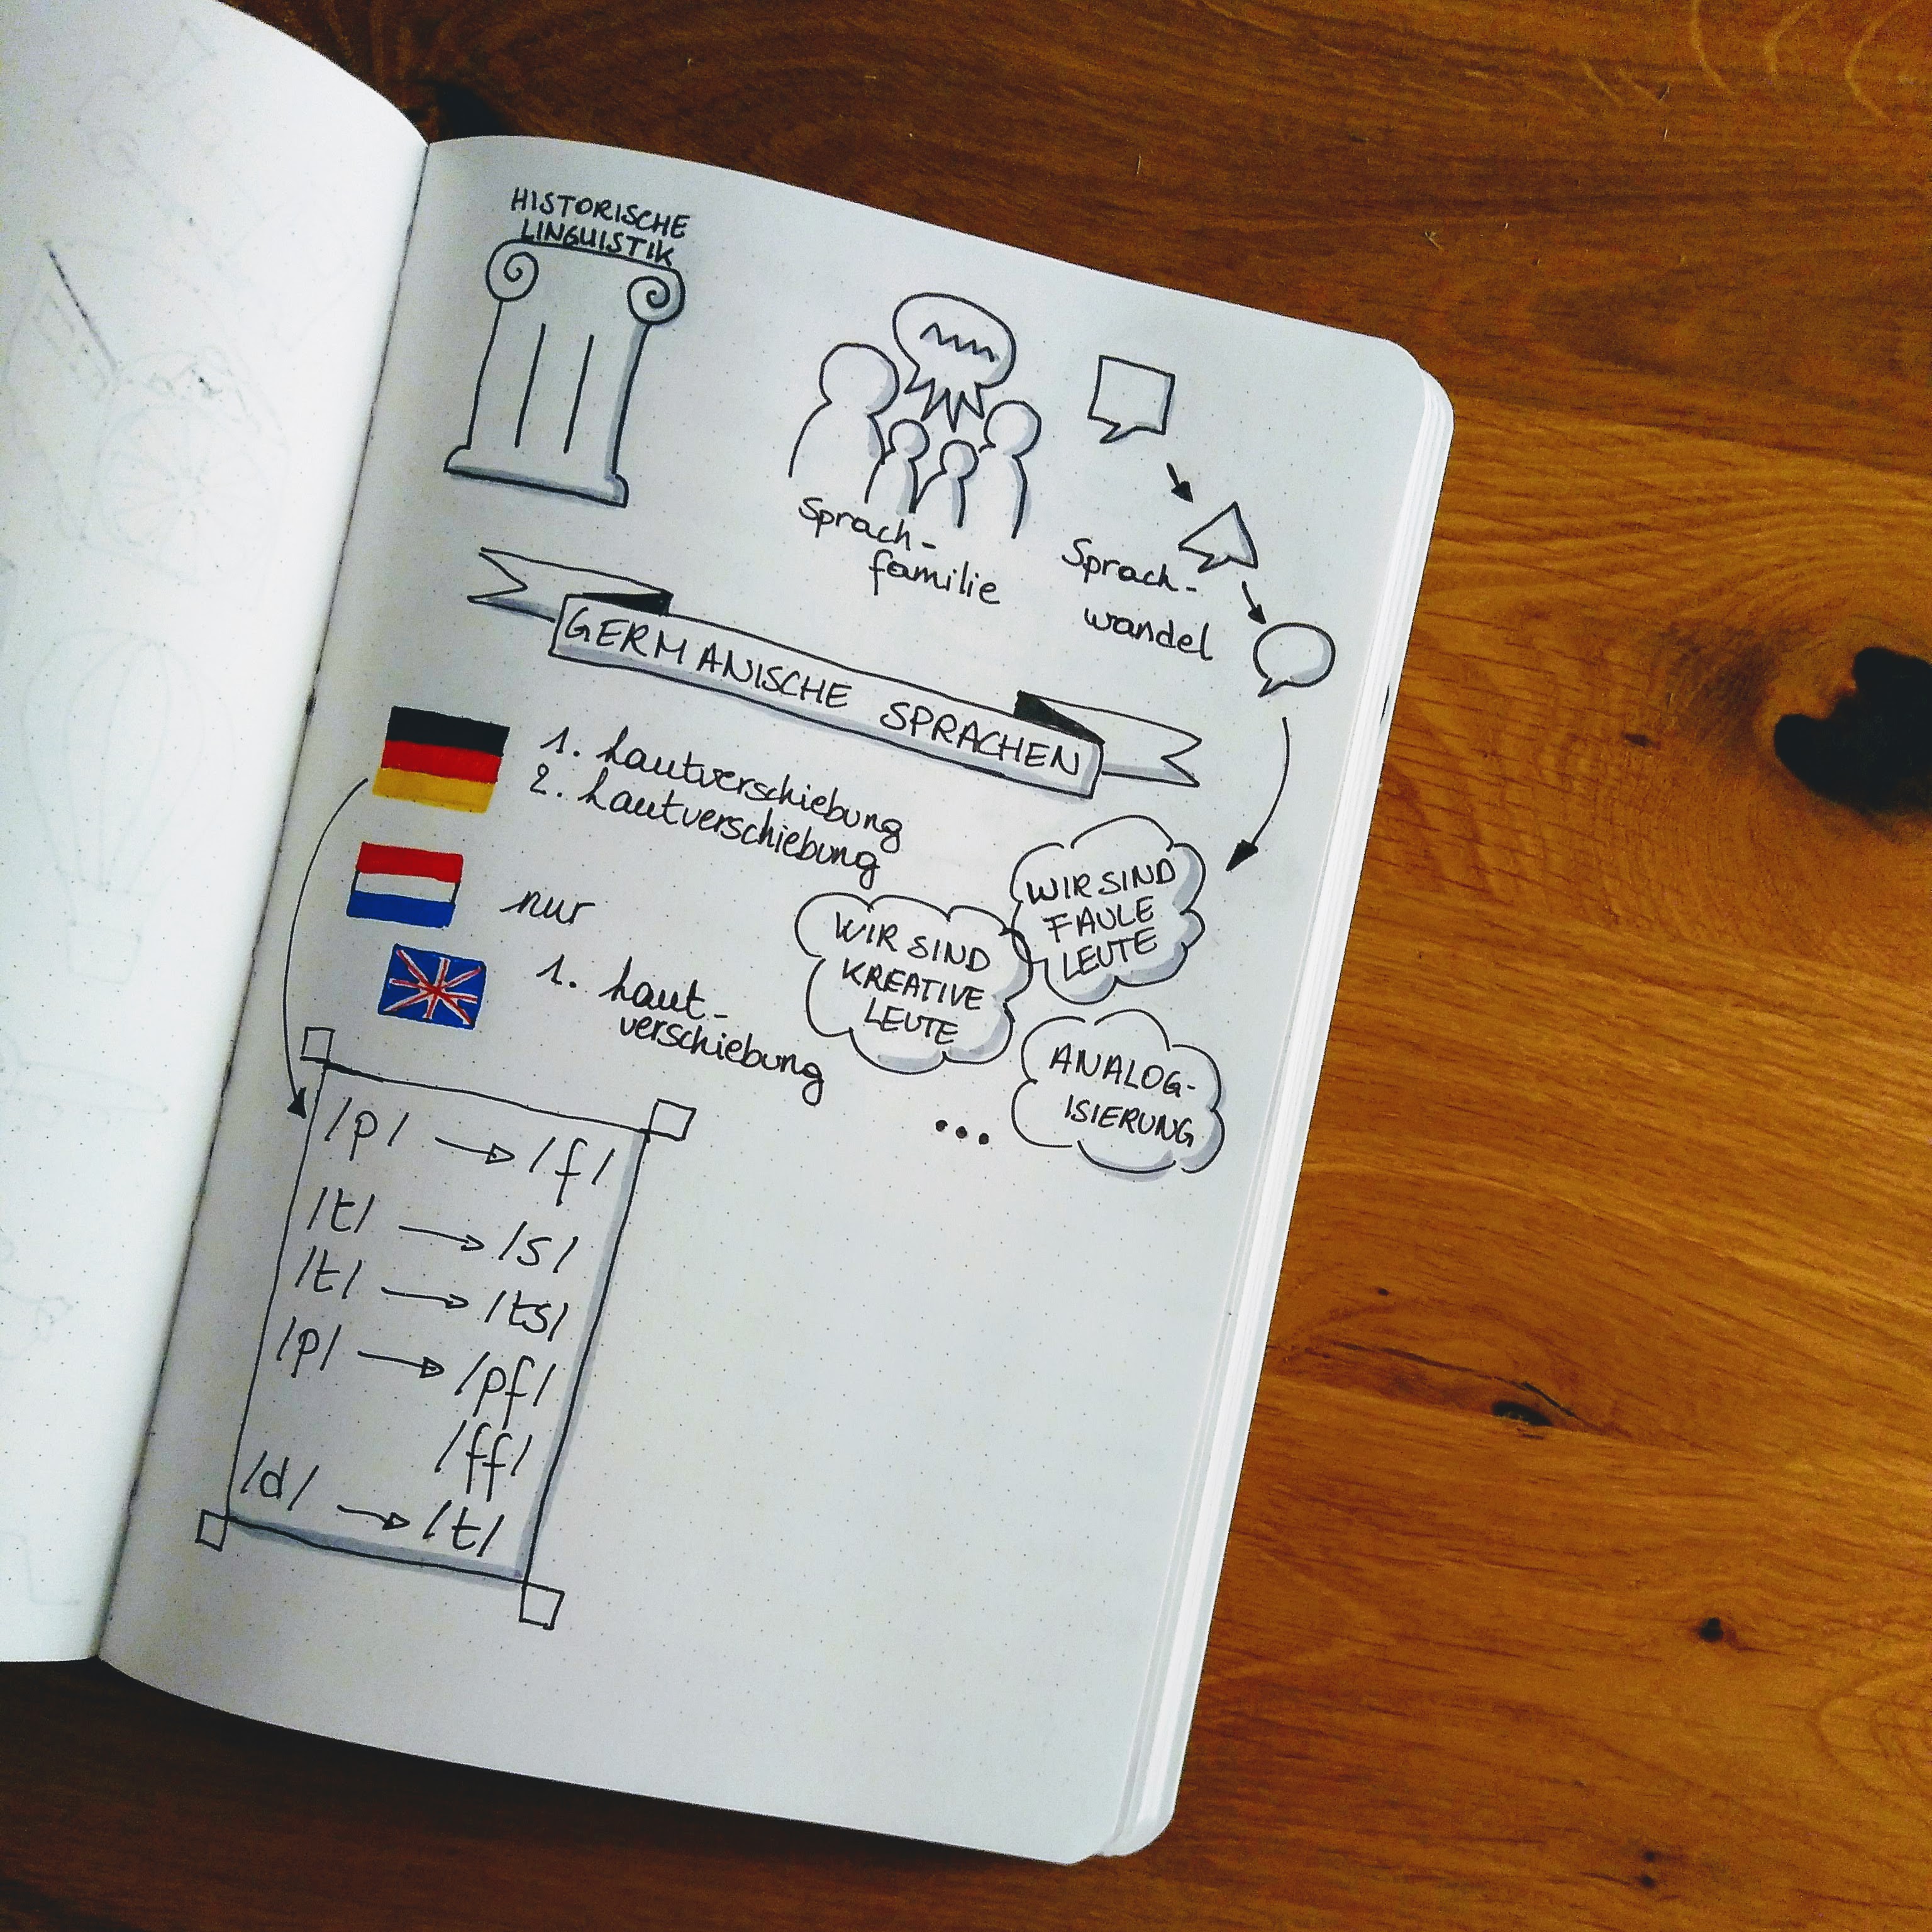 HISTORISCHE
LINGUISTIK
Sprach-
familie
Sprach-
wandel
GERMANISCHE SPRACHEN
1. Lautverschiebung
2. Lautverschiebung
nur
1. Laut-
verschiebung
WIR SIND
FAULE
LEUTE
WIR SIND
KREATIVE
LEUTE
ANALOG-
ISIERUNG
...
/p/ → /f/
/t/ → /s/
/t/ → /ts/
/p/ → /pf/
/ff/
/d/ → /t/